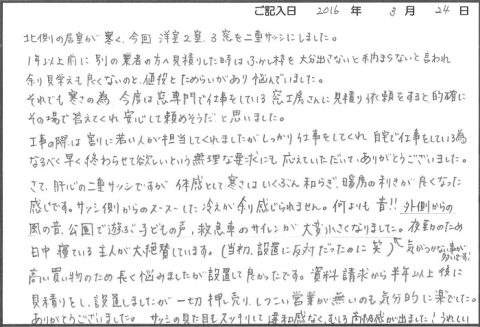 ご記入日 2016 年 3 月 24 日
北側の居室が寒く、今回 洋室2室、3窓を二重サッシにしました。
1年以上前に 別の業者の方へ見積りした時は ふかし枠を大分出さないと納まらないと言われ
余り見栄えも良くないのと、値段とためらいがあり悩んでいました。
それでも寒さの為、今度は窓専門で仕事をしている窓工房さんに見積り依頼をすると的確に
その場で答えてくれ 安心して頼めそうだと思いました。
工事の際は 割りに若い人が担当してくれましたがしっかり仕事をしてくれ 自宅で仕事をしている為
なるべく早く終わらせて欲しいという無理な要求にも応えていただいて、ありがとうございました。
さて、肝心の二重サッシですが 体感として寒さはいくぶん和らぎ、暖房の利きが良くなった
感じです。サッシ側からのスースーした冷えが余り感じられません。何よりも 音!! 外側からの
風の音、公園で遊ぶ子どもの声、救急車のサイレンが大変小さくなりました。夜勤のため
日中寝ている主人が大絶賛しています。(当初、設置に反対だったのに 笑) 気がつかない事が
多いです!
高い買い物のため長く悩みましたが設置して良かったです。資料請求から半年以上後に
見積りをし、設置しましたが 一切 押し売り、しつこい営業が無いのも気分的に楽でした。
ありがとうございました。 サッシの見た目もスッキリして違和感なく、むしろ高級感が出ました! うれしい